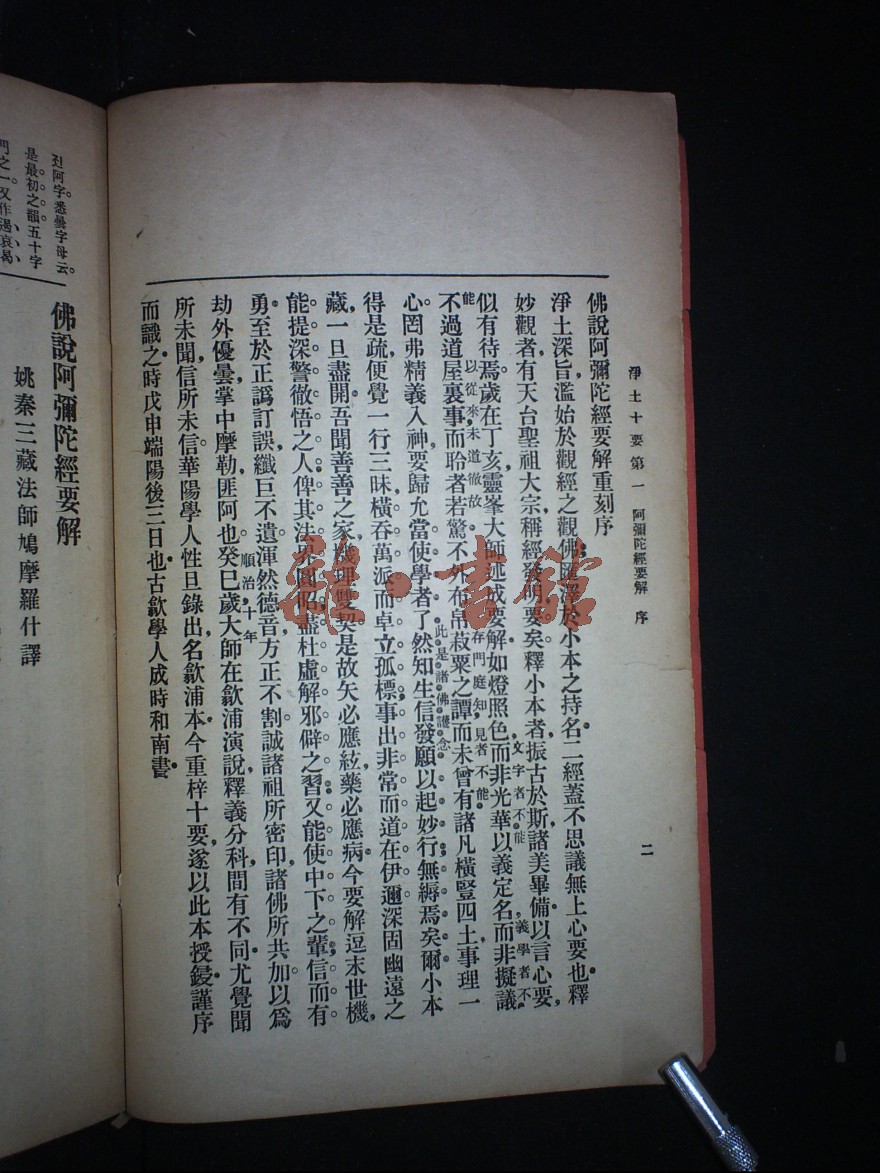 淨土十要第一 阿彌陀經要解 序 二
佛說阿彌陀經要解重刻序
淨土深旨，濫始於觀經之觀佛，匯澤於小本之持名。二經蓋不思議無上心要也。釋
妙觀者，有天台聖祖大宗稱經發明要矣。釋小本者，振古於斯，諸美畢備，以言心要，
似有待焉。歲在丁亥，靈峯大師述成要解，如燈照色，而非光華，文字者不能以義定名，而非擬議，義學者不
能不過道屋裏事，以從來未道徹故而聆者若驚，不外布帛菽粟之譚，而未曾有，存門庭知見者不能。諸凡橫豎四土，事理一
心，罔弗精義入神，要歸允當，使學者了然知生信發願以起妙行，無縟焉矣。此是諸佛護念爾小本
得是疏，便覺一行三昧，橫吞萬派，而卓立孤標，事出非常，而道在伊邇，深固幽遠之
藏，一旦盡開。吾聞善善之家，機理雙契，是故矢必應絃，藥必應病。今要解逗末世機，
能提深警徹悟之人，俾其法界圓昭，盡杜虛解邪僻之習，又能使中下之輩，信而有
勇。至於正譌訂誤，纖巨不遺，渾然德音，方正不割，誠諸祖所密印，諸佛所共加，以爲
劫外優曇，掌中摩勒，匪阿也。癸巳歲，順治十年大師在歙浦演說，釋義分科，間有不同，尤覺聞
所未聞，信所未信。華陽學人性旦錄出，名歙浦本。今重梓十要，遂以此本授鋟，謹序
而識之。時戊申端陽後三日也。古歙學人成時和南書。
阿字悉曇字母云。
是最初之韻五十字
門之一又作遏哀曷
佛說阿彌陀經要解
姚秦三藏法師鳩摩羅什譯
雜·古館